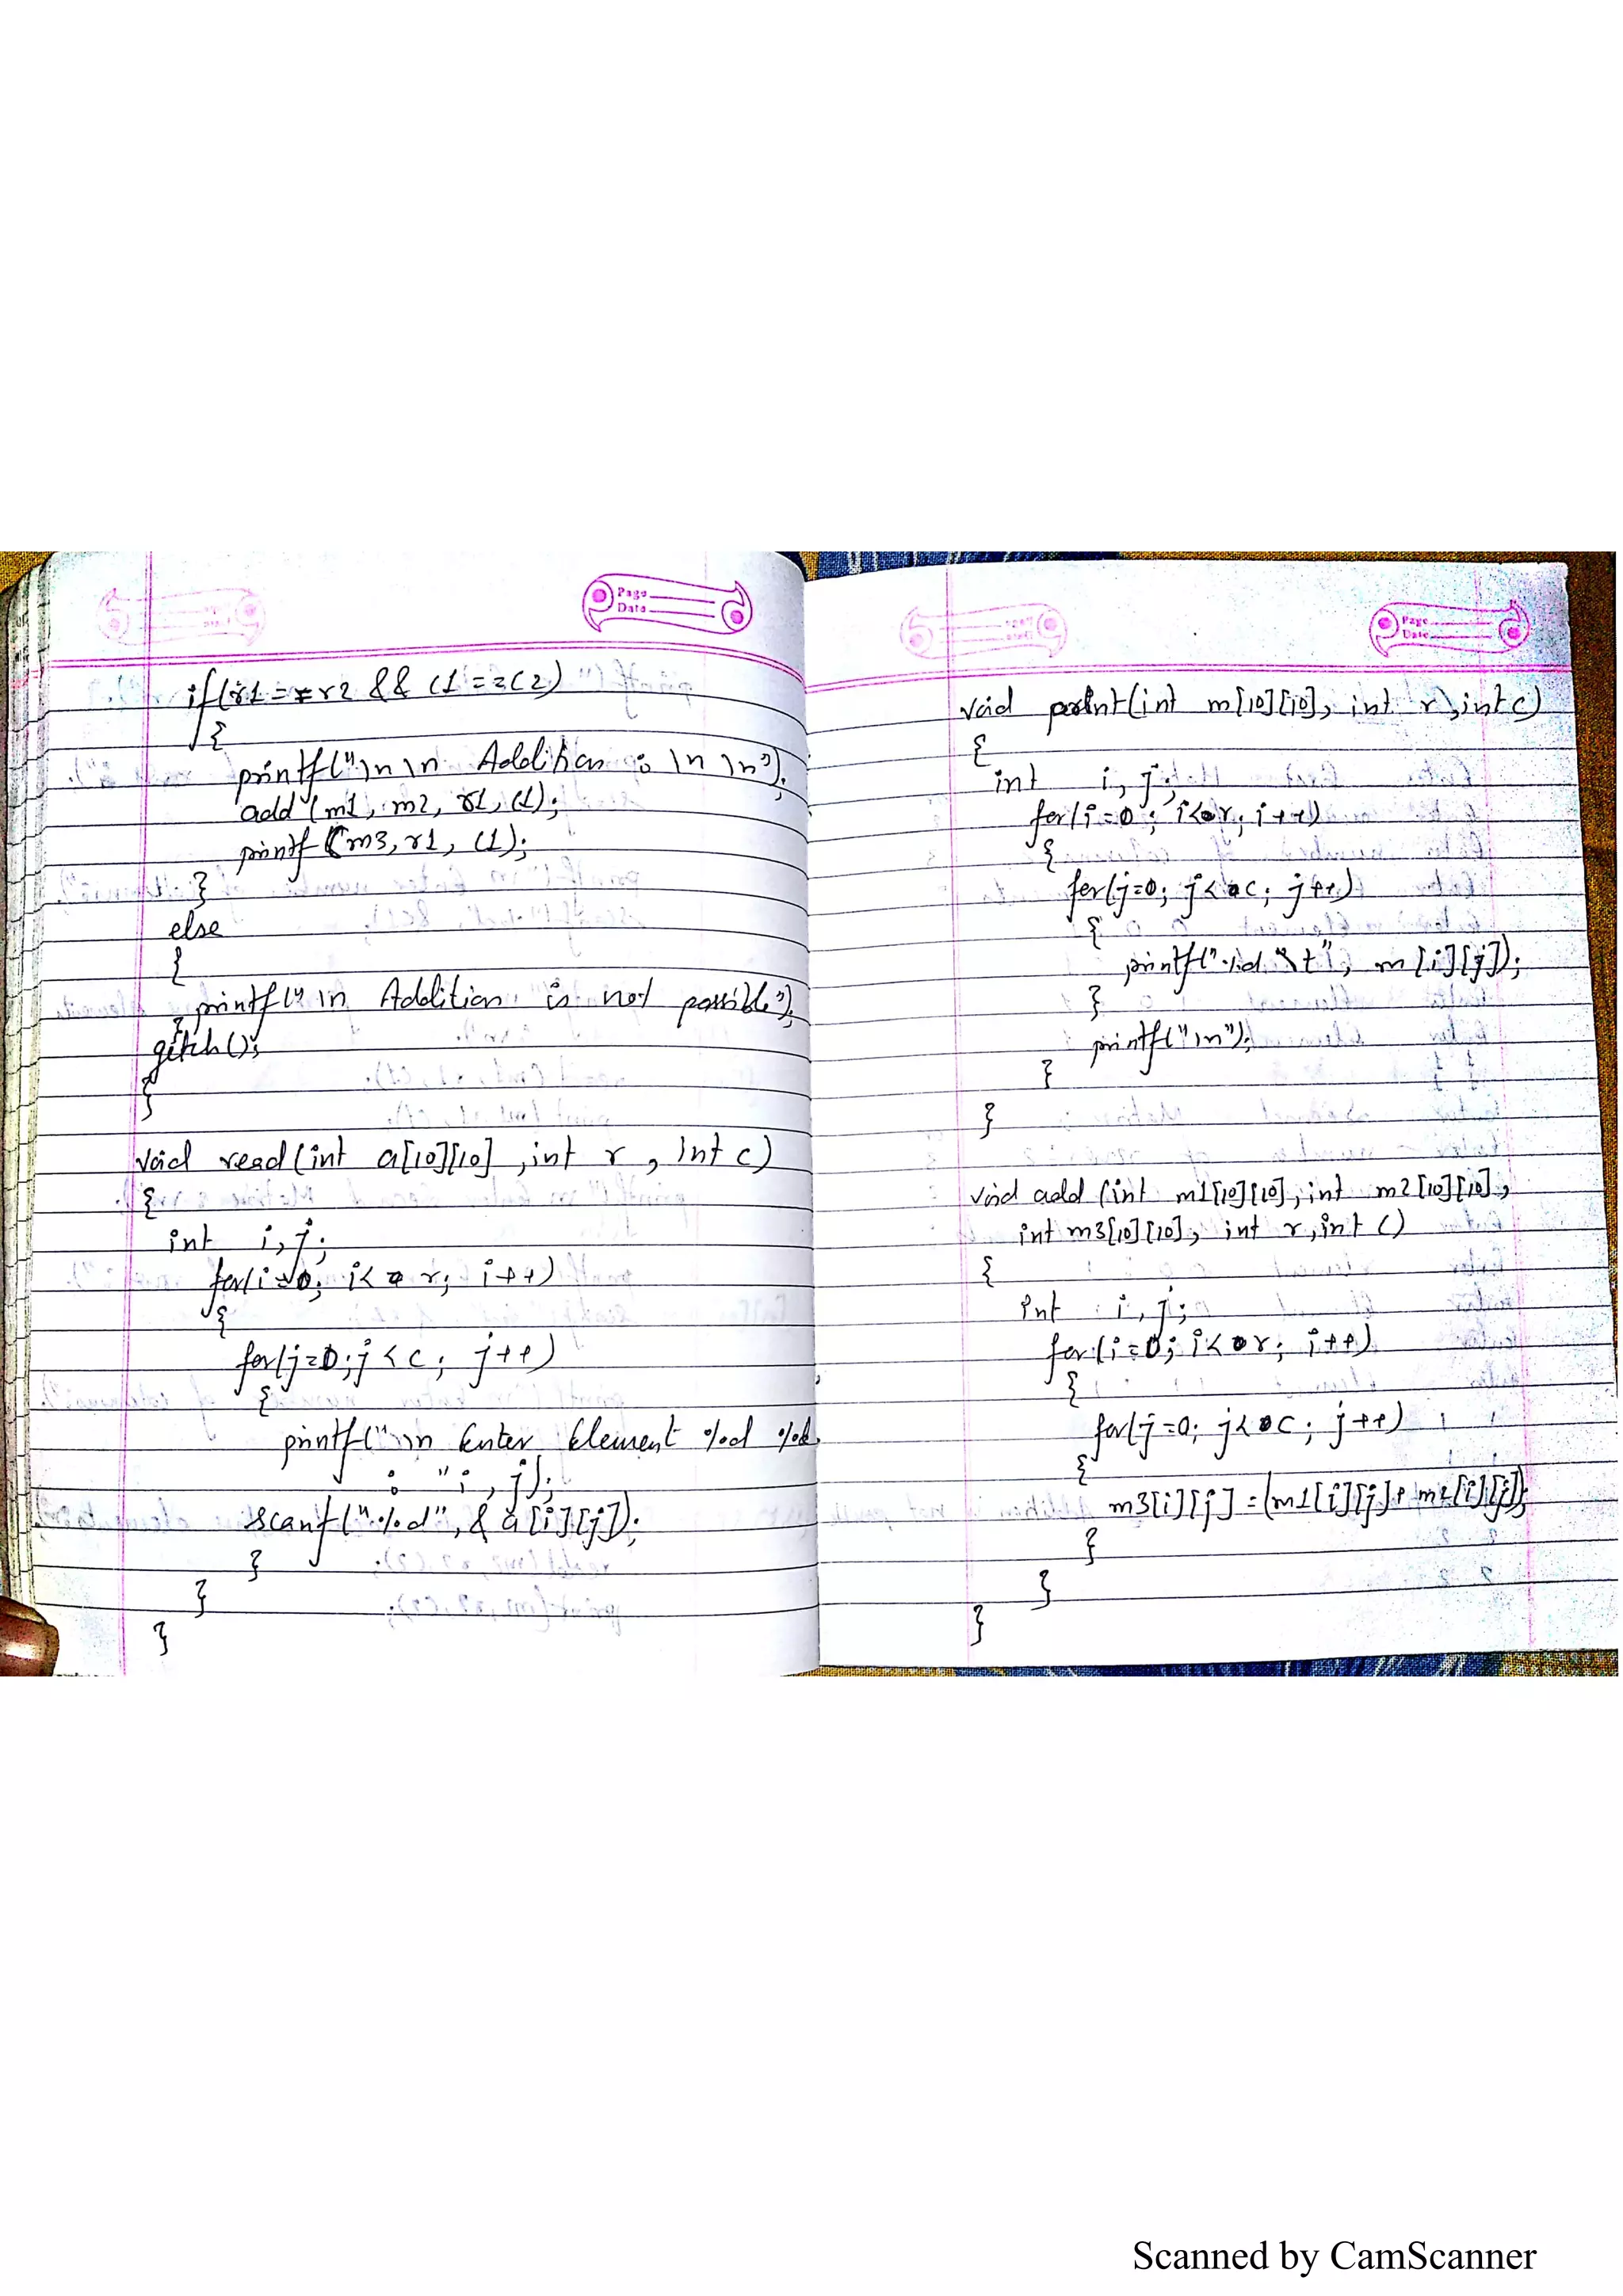 Page
Date
if(r1 == r2 && c1 == c2)
{
printf("\n\n Addition : \n \n");
add (m1, m2, r1, c1);
printf (m3, r1, c1);
}
else
{
printf("\n Addition is not possible");
}
getch();
}
void read(int a[10][10], int r, int c)
{
int i, j;
for(i=0; i< r; i++)
{
for(j=0; j<c; j++)
{
printf("\n Enter Element %d %d
: " i, j);
scanf("%d", & a[i][j]);
}
}
}
Page
Date
void print(int m[10][10], int r, int c)
{
int i, j;
for(i=0; i<r; i++)
{
for(j=0; j<c; j++)
{
printf("%d \t", m[i][j]);
}
printf("\n");
}
}
void add (int m1[10][10], int m2[10][10],
int m3[10][10], int r, int c)
{
int i, j;
for(i=0; i<r; i++)
{
for(j=0; j<c; j++)
{
m3[i][j] = (m1[i][j]+ m2[i][j]);
}
}
}
Scanned by CamScanner